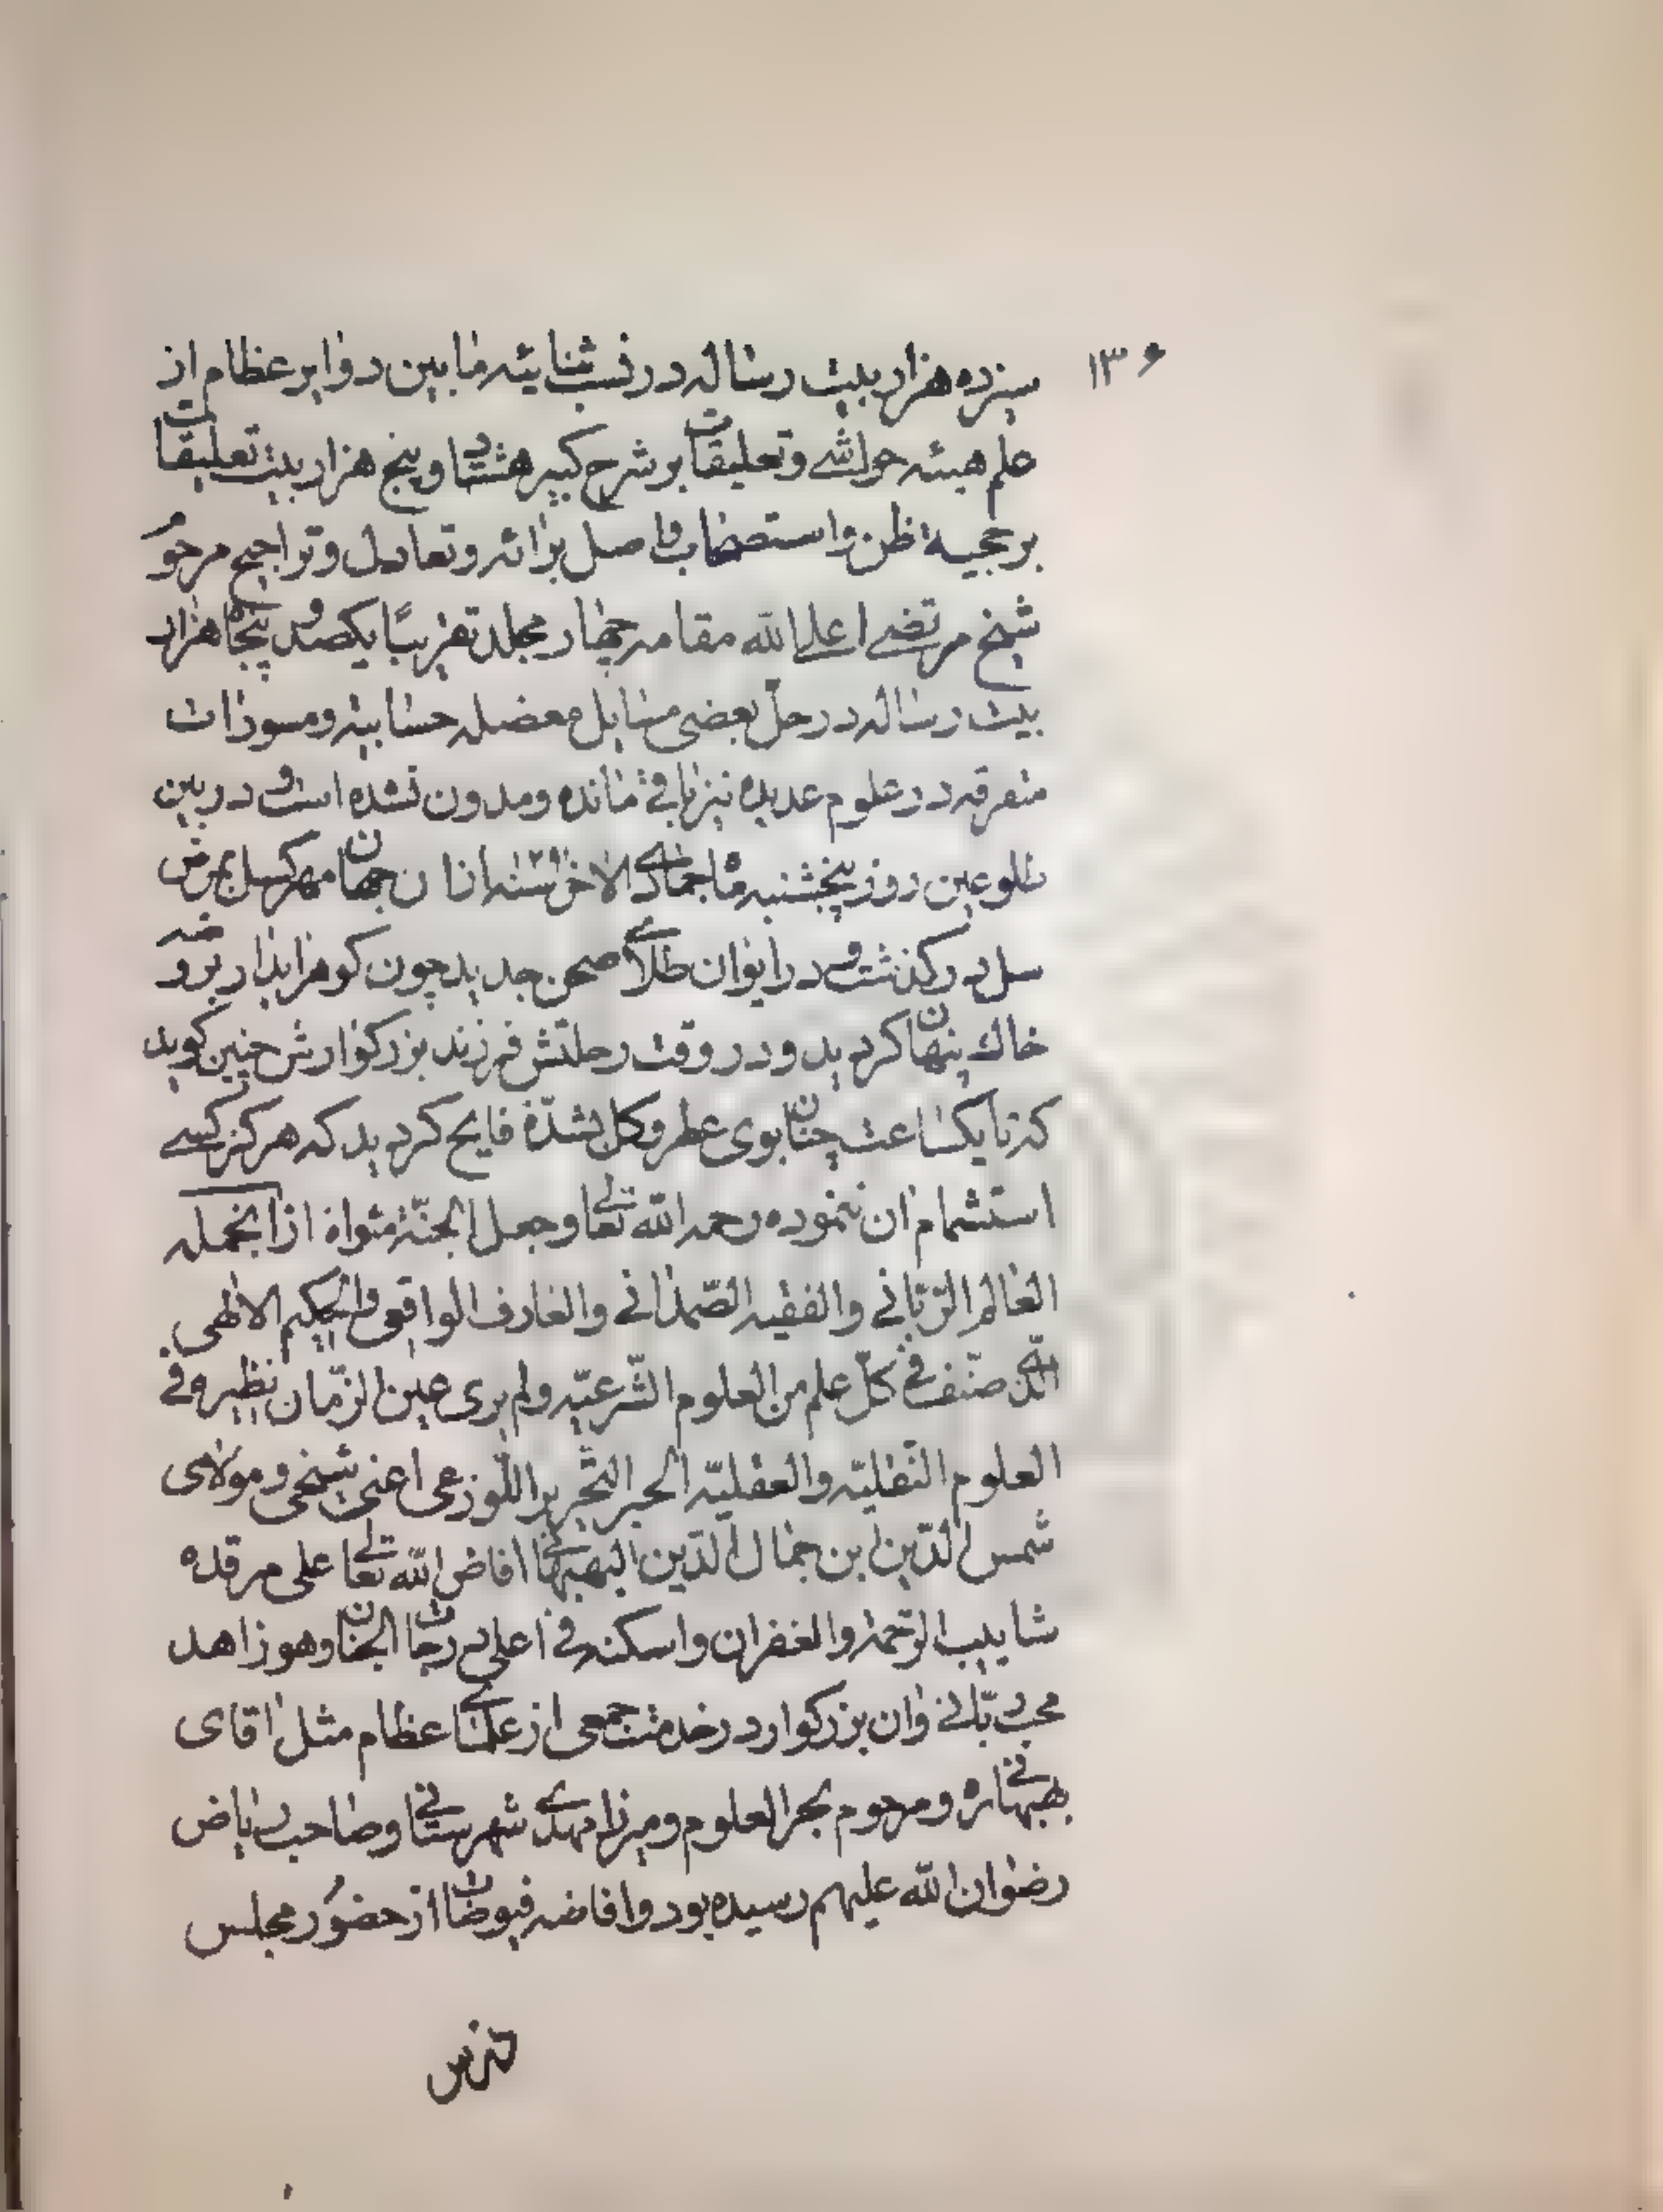 ۱۳۶
سیزده هزار بیت رساله در نسب ثنائیه مابین دوایر عظام از
علم هیئه حواشی و تعلیقات بر شرح کبیر هشتاد و پنج هزار بیت تعلیقات
بر حجیه ظن و استصحاب و اصل برائه و تعادل و تراجیح مرحوم
شیخ مرتضی اعلی الله مقامه چهار مجلد تقریبًا یکصد و پنجاه هزار
بیت رساله در حلّ بعضی مسایل معضله حسابیه و مسودات
متفرقه در علوم عدیده نیز باقی مانده و مدون نشده است و در بین
طلوعین روز پنجشنبه ماه جمادی الاخر سنه از ان جهان بمرض
سل در گذشت و در ایوان طلای صحن جدید چون کوهر ابدار بروضه
خاک پنهان کردید و در وقت رحلتش فرزند بزرکوارش چنین کوید
که تا یکساعت چنان بوی عطر و کل بشدّة فایح کردید که هرکز کسی
استشمام ان ننموده رحمه الله تعالی و جعل الجنّة مثواه از انجمله
العالم الرّبّانی و الفقیه الصّمدانی و العارف الواقعی و الحکیم الالهی
الّذی صنّف فی کلّ علم من العلوم الشّرعیّه و لم یری عین الزّمان نظیره فی
العلوم النّقلیّه و العقلیّه الحبر النّحریر اللّوزعی اعنی شیخی و مولای
شمس الدّین بن جمال الدّین البهبهانی افاض الله تعالی علی مرقده
شابیب الرّحمة و الغفران و اسکنه فی اعلی درجات الجنان و هو زاهد
محب ربّانی و ان بزرکوار در خدمت جمعی از علمای عظام مثل اقای
بهبهانی ره و مرحوم بحر العلوم و میرزا مهدی شهرستانی و صاحب ریاض
رضوان الله علیهم رسیده بود و افاضه فیوضات از حضور مجلس